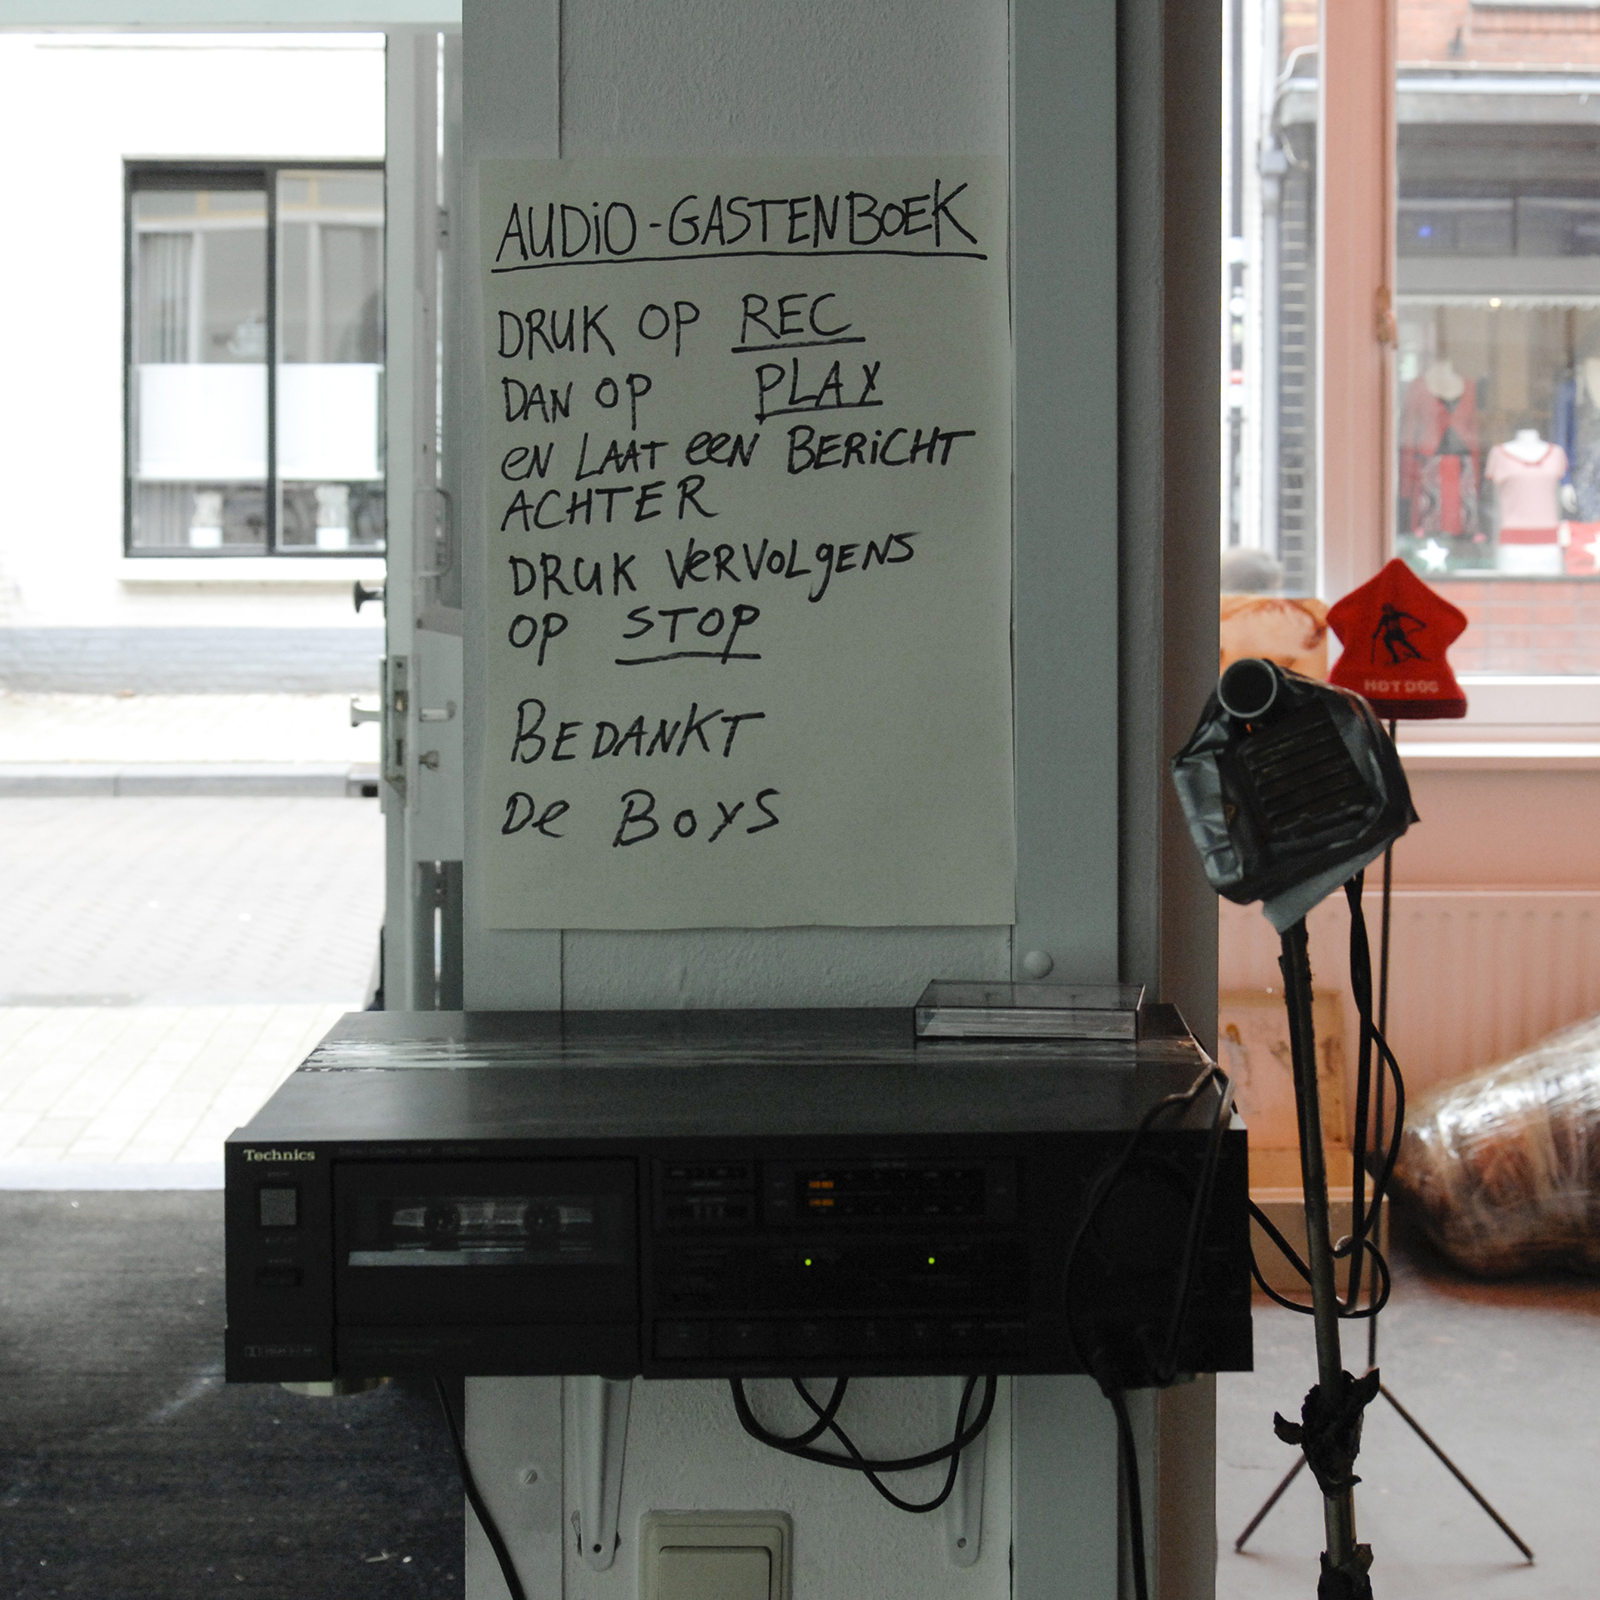 AUDiO-GASTENBOEK
DRUK OP REC
DAN OP PLAY
eN LAAT eeN BERiCHT
ACHTER
DRUK VeRVOLgENS
OP STOP
BEDANKT
De BoyS
HOT DOG
Technics